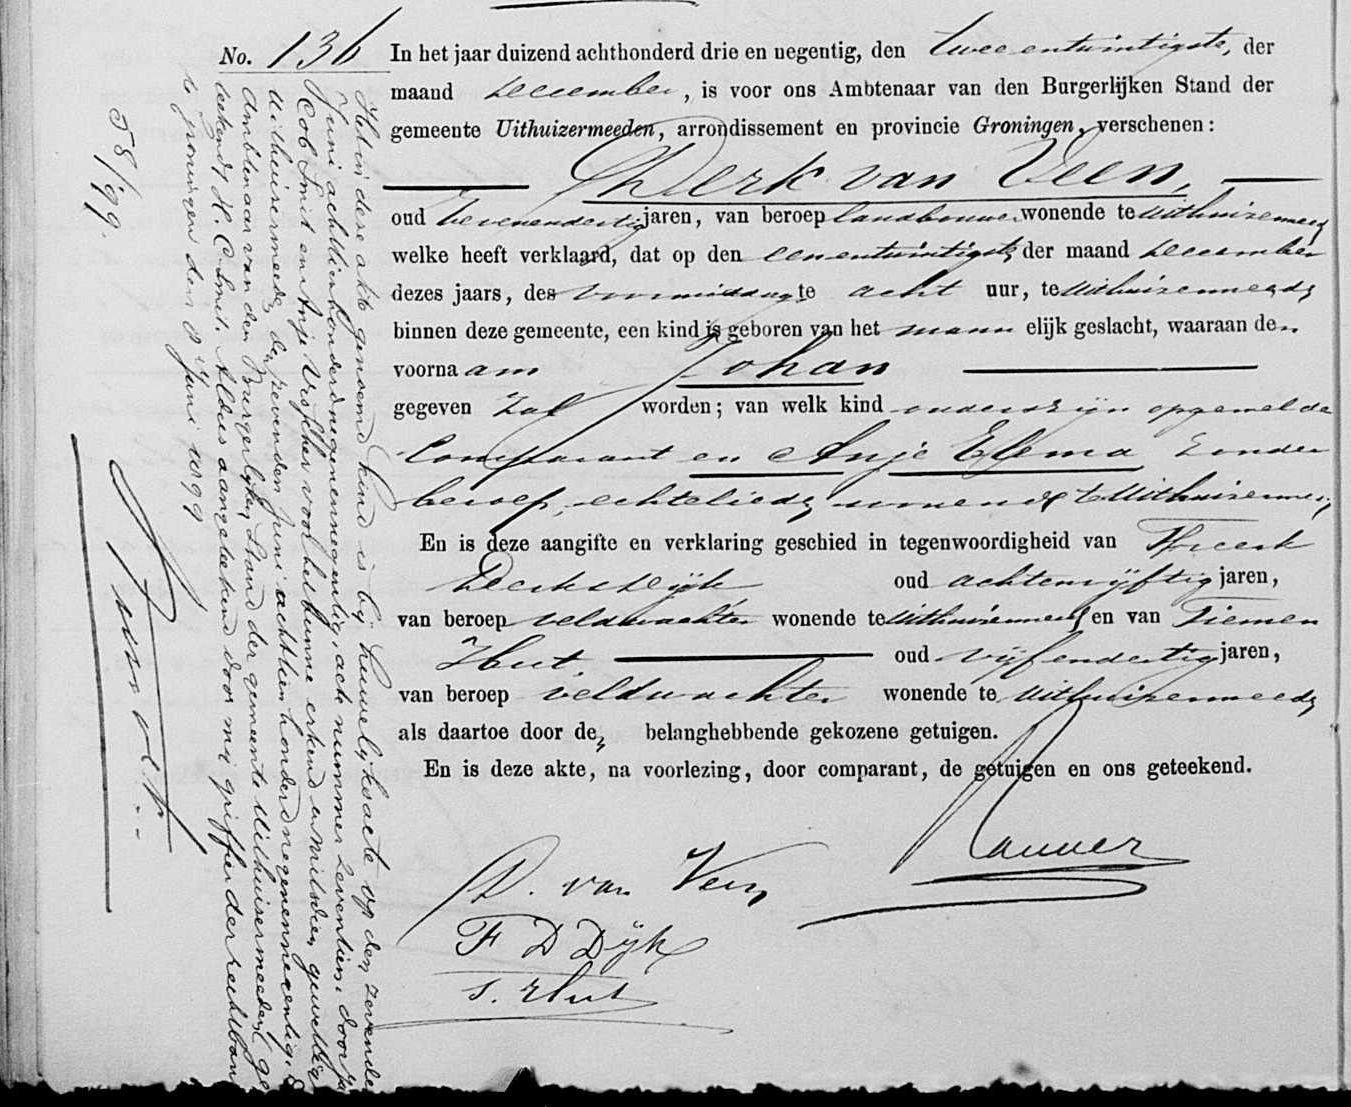 No. 136 In het jaar duizend achthonderd drie en negentig, den twee entwintigste, der
maand December, is voor ons Ambtenaar van den Burgerlijken Stand der
gemeente Uithuizermeeden, arrondissement en provincie Groningen, verschenen:
Derk van Veen,
oud zevenendertig jaren, van beroep landbouwer wonende te Uithuizermeeden
welke heeft verklaard, dat op den eenentwintigste der maand December
dezes jaars, des voormiddags te acht uur, te Uithuizermeeden
binnen deze gemeente, een kind is geboren van het mannelijk geslacht, waaraan de
voornaam Johan
gegeven zal worden; van welk kind ouders zijn opgemelde
Comparant en Anje Elema zonder
beroep, echtelieden wonende te Uithuizermeeden
En is deze aangifte en verklaring geschied in tegenwoordigheid van Freerk
Derks Dijk oud achtenvijftig jaren,
van beroep veldwachter wonende te Uithuizermeeden en van Tiemen
Hut oud vijfendertig jaren,
van beroep veldwachter wonende te Uithuizermeeden
als daartoe door de belanghebbende gekozene getuigen.
En is deze akte, na voorlezing, door comparant, de getuigen en ons geteekend.
D. van Veen
F D Dijk
T. Hut
58/99.
Het in deze akte genoemd kind is bij huwelijksacte op den zevende
Juni achttienhonderdnegenennegentig, acte nummer zeventien, door Ja
cob Smit en Anje Visscher voor het hunne erkend en mitsdien gewettigd
Uithuizermeeden, den zevenden Juni achttienhonderdnegenennegentig. D
Ambtenaar van den Burgerlijken Stand der gemeente Uithuizermeeden, ge
teekend, H. C. Smit. Aldus aangeteekend door mij griffier der rechtbank
te Groningen den Juni 1899